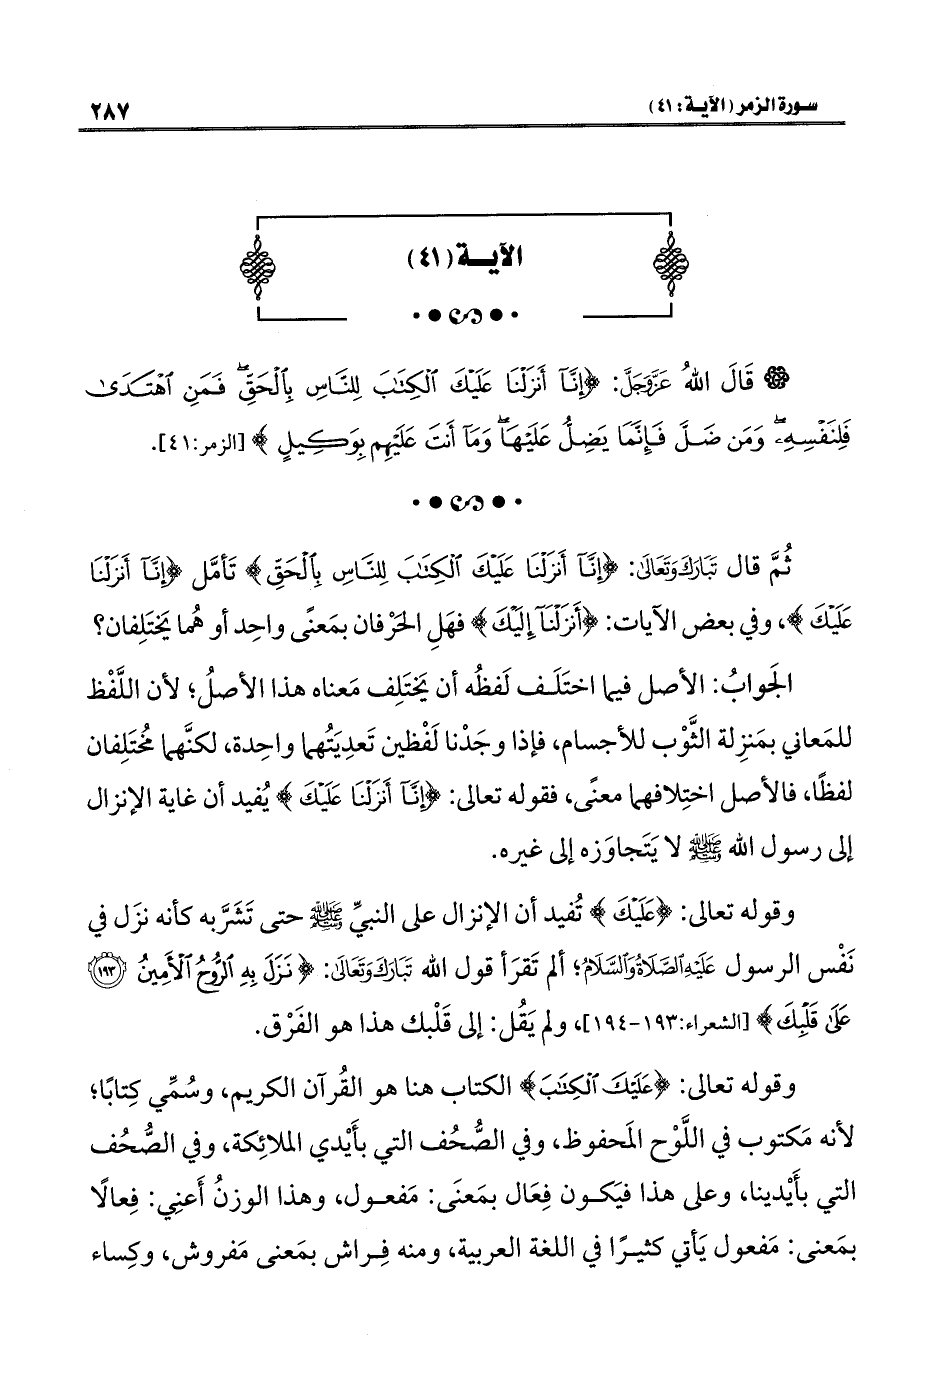 سورة الزمر (الآية: ٤١)
٢٨٧
الآية (٤١)
قَالَ اللهُ عَزَّوَجَلَّ: ﴿إِنَّآ أَنزَلْنَا عَلَيْكَ ٱلْكِتَٰبَ لِلنَّاسِ بِٱلْحَقِّ ۖ فَمَنِ ٱهْتَدَىٰ
فَلِنَفْسِهِۦ ۖ وَمَن ضَلَّ فَإِنَّمَا يَضِلُّ عَلَيْهَا ۖ وَمَآ أَنتَ عَلَيْهِم بِوَكِيلٍ ﴾ [الزمر:٤١].
ثُمَّ قال تَبَارَكَ وَتَعَالَى: ﴿إِنَّآ أَنزَلْنَا عَلَيْكَ ٱلْكِتَٰبَ لِلنَّاسِ بِٱلْحَقِّ﴾ تَأمَّل ﴿إِنَّآ أَنزَلْنَا
عَلَيْكَ ﴾، وفي بعض الآيات: ﴿أَنزَلْنَآ إِلَيْكَ﴾ فهَلِ الحَرْفان بمَعنًى واحِد أو هُما يَختَلِفان؟
الجَوابُ: الأصل فيما اختَلَف لَفظُه أن يَختَلِف مَعناه هذا الأصلُ؛ لأن اللَّفْظ
للمَعاني بمَنزِلة الثَّوْب للأجسام، فإذا وجَدْنا لَفْظين تَعدِيَتُهما واحِدة، لكنَّهما مُختَلِفان
لفظًا، فالأصل اختِلافهما معنًى، فقوله تعالى: ﴿إِنَّآ أَنزَلْنَا عَلَيْكَ ﴾ يُفيد أن غاية الإنزال
إلى رسول الله ﷺ لا يَتَجاوَزه إلى غيره.
وقوله تعالى: ﴿عَلَيْكَ ﴾ تُفيد أن الإنزال على النبيِّ ﷺ حتى تَشَرَّبه كأنه نزَل في
نَفْس الرسول عَلَيْهِ الصَّلَاةُ وَالسَّلَامُ؛ ألم تَقرَأ قول الله تَبَارَكَ وَتَعَالَى: ﴿ نَزَلَ بِهِ ٱلرُّوحُ ٱلْأَمِينُ ١٩٣
عَلَىٰ قَلْبِكَ﴾ [الشعراء:١٩٣-١٩٤]، ولم يَقُل: إلى قَلْبك هذا هو الفَرْق.
وقوله تعالى: ﴿عَلَيْكَ ٱلْكِتَٰبَ﴾ الكتاب هنا هو القُرآن الكريم، وسُمِّي كِتابًا؛
لأنه مَكتوب في اللَّوْح المَحفوظ، وفي الصُّحُف التي بأَيْدي الملائِكة، وفي الصُّحُف
التي بأَيْدينا، وعلى هذا فيَكون فِعَال بمَعنَى: مَفعول، وهذا الوزنُ أَعنِي: فِعالًا
بمَعنى: مَفعول يَأتي كثيرًا في اللغة العربية، ومنه فِراش بمَعنى مَفروش، وكِساء